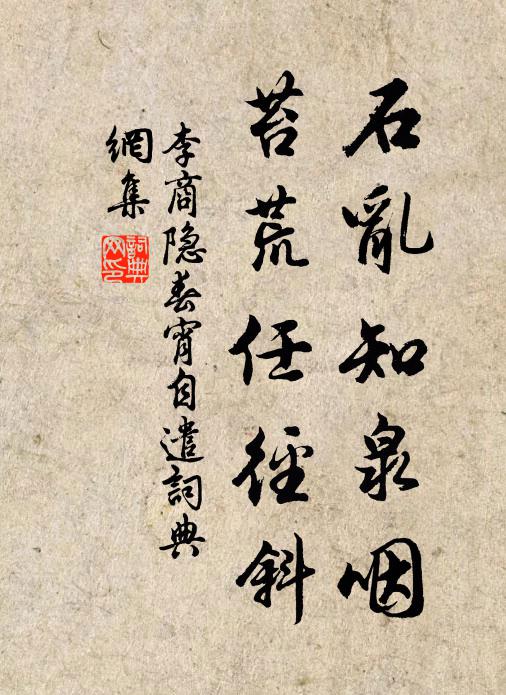 石亂知泉咽
苔荒任徑斜
李商隐春宵自遣詞典
網集
詞典網印